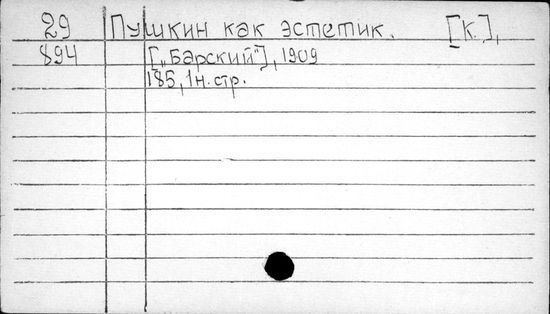 29 Пушкин как эстетик. [К.],
894 [„Барский"], 1909
185, 1 н. стр.